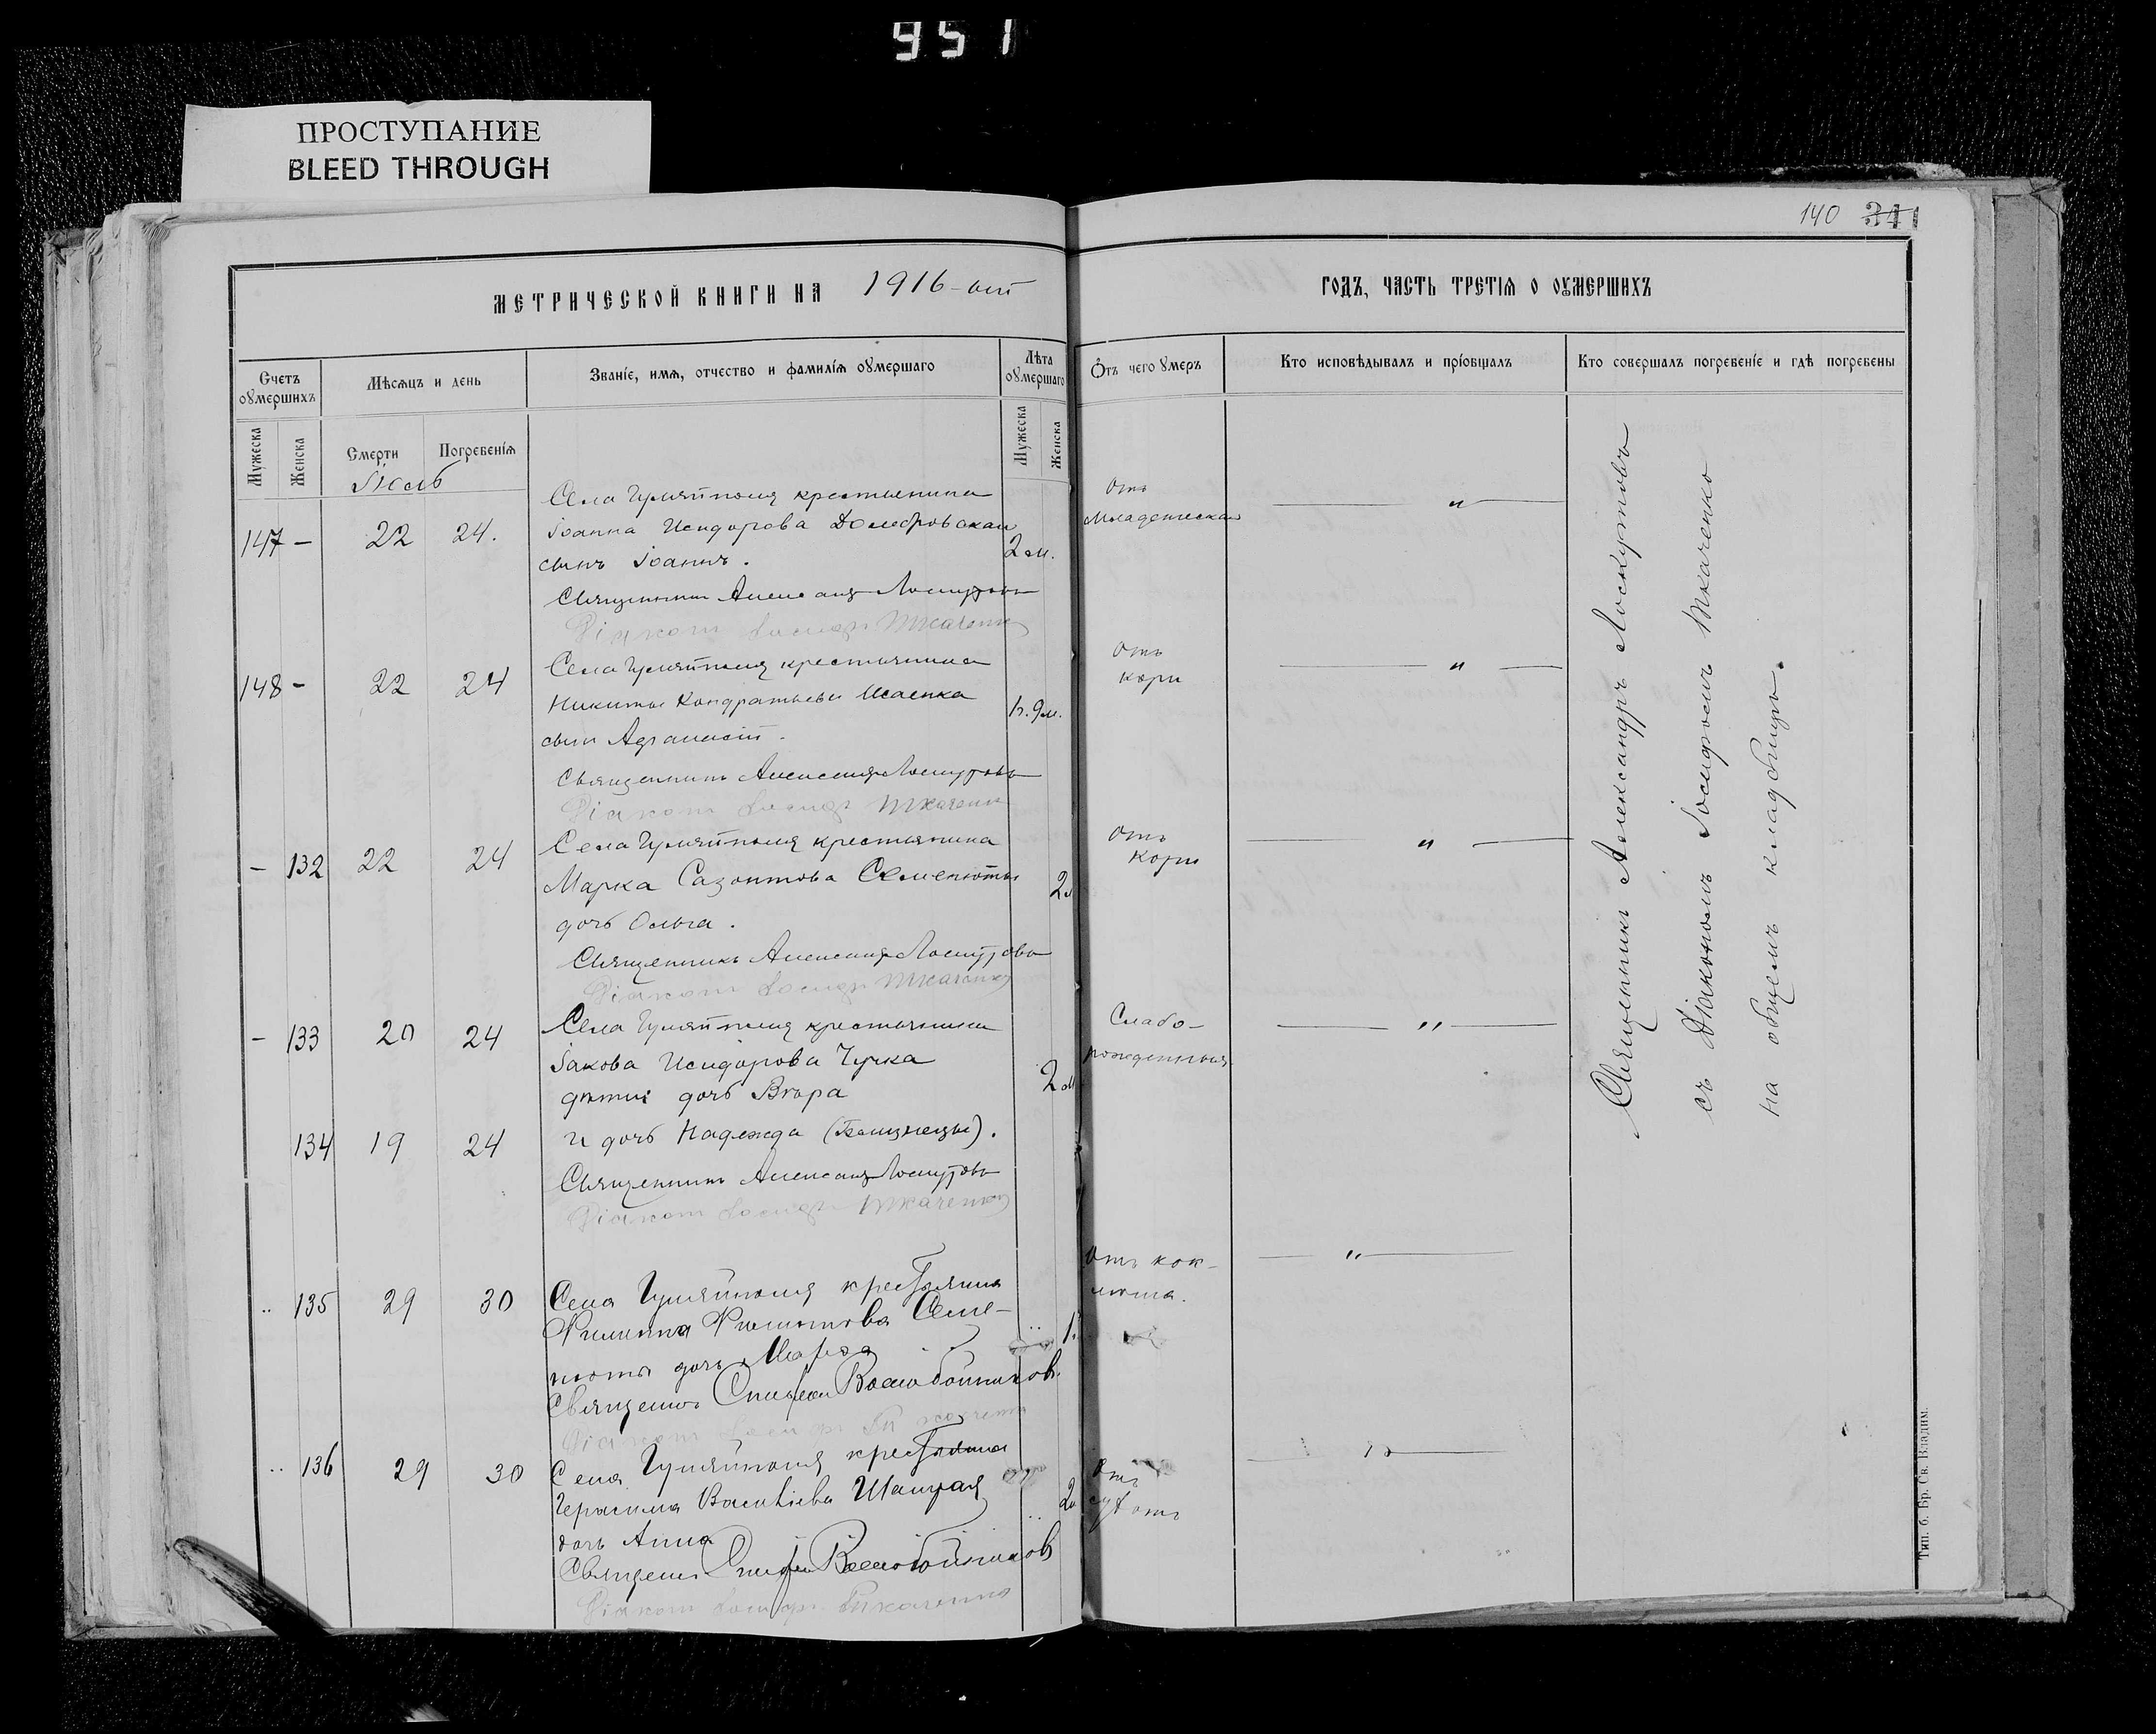 951
ПРОСТУПАНИЕ
BLEED THROUGH
140 341
МЕТРИЧЕСКОЙ КНИГИ НА 1916-ый
ГОДЪ, ЧАСТЬ ТРЕТІЯ О ОУМЕРШИХЪ
Счетъ оумершихъ
Мѣсяцъ и день
Званіе, имя, отчество и фамилія оумершаго
Лѣта оумершаго
Отъ чего умеръ
Кто исповѣдывалъ и пріобщалъ
Кто совершалъ погребеніе и гдѣ погребены
Мужеска
Женска
Смерти
Погребенія
Мужеска
Женска
Іюль
147 - 22 24.
Села Гуляйполя крестьянина
Іоанна Исидорова
сынъ Іоаннъ.
2 м.
Отъ
младенческая
"
Священникъ Александръ Лоскутовъ
Діаконъ Іосифъ Ткаченко
148 - 22 24
Села Гуляйполя крестьянина
Никиты Кондратьева Исаенка
сынъ
1 г. 9 м.
Отъ
кори
"
Священникъ Александръ Лоскутовъ
Діаконъ Іосифъ Ткаченко
- 132 22 24
Села Гуляйполя крестьянина
Марка Сазонтова Семенюты
дочь Ольга.
2
Отъ
кори
"
Священникъ Александръ Лоскутовъ
Діаконъ Іосифъ Ткаченко
- 133 20 24
Села Гуляйполя крестьянина
Іакова Исидорова Гучка
дѣти: дочь Вѣра
2 м
Слабо-
рожденныя
"
134 19 24
и дочь Надежда (близнецы).
Священникъ Александръ Лоскутовъ
Діаконъ Іосифъ Ткаченко
" 135 29 30
Села Гуляйполя крестьянина
Филиппа Семе-
нюты дочь Марѳа
" 1
Отъ кок-
люша.
"
Священникъ
Діаконъ Іосифъ Ткаченко
" 136 29 30
Села Гуляйполя крестьянина
Герасима Василіева
дочь Анна
" 2
Отъ
"
Священникъ
Діаконъ Іосифъ Ткаченко
Священникъ Александръ Лоскутовъ
съ Діакономъ Іосифомъ Ткаченко
на общемъ кладбищѣ.
Тип. б. Бр. Св. Владим.